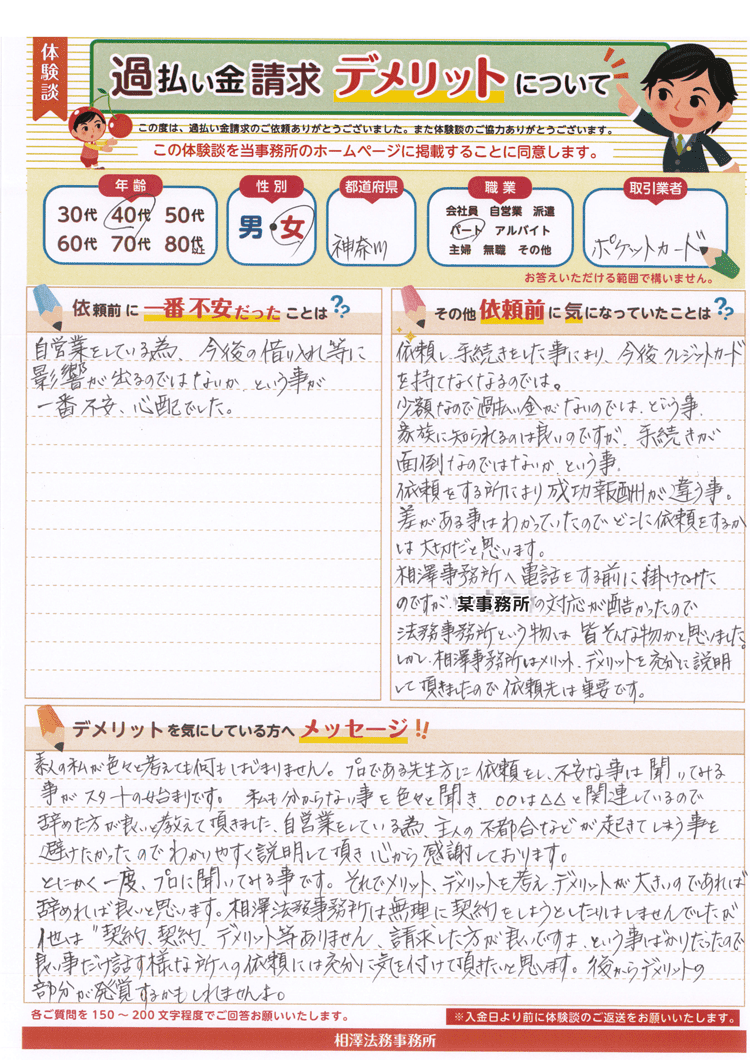 体験談
過払い金請求 デメリットについて
この度は、過払い金請求のご依頼ありがとうございました。また体験談のご協力ありがとうございます。
この体験談を当事務所のホームページに掲載することに同意します。
年齢
30代 40代 50代
60代 70代 80代以上
性別
男・女
都道府県
神奈川
職業
会社員 自営業 派遣
パート アルバイト
主婦 無職 その他
取引業者
ポケットカード
お答えいただける範囲で構いません。
依頼前に一番不安だったことは??
自営業をしている為、今後の借り入れ等に
影響が出るのではないか、という事が
一番不安、心配でした。
その他依頼前に気になっていたことは??
依頼し、手続きをした事により、今後クレジットカード
を持てなくなるのでは。
少額なので過払い金がないのでは、という事、
家族に知られるのは良いのですが、手続きが
面倒なのではないか、という事、
依頼をする所により成功報酬が違う事。
差がある事はわかっていたのでどこに依頼をするか
は大切だと思います。
相澤事務所へ電話をする前に掛けてみた
のですが、某事務所の対応が酷かったので
法務事務所という物は皆そんな物かと思いました。
しかし、相澤事務所はメリット、デメリットを充分に説明
して頂きましたので依頼先は重要です。
デメリットを気にしている方へメッセージ!!
素人の私が色々と考えても何もはじまりません。プロである先生方に依頼をし、不安な事は聞いてみる
事がスタートの始まりです。私も分からない事を色々と聞き、○○は△△と関連しているので
辞めた方が良いと教えて頂きました、自営業をしている為、主人の不都合などが起きてしまう事を
避けたかったのでわかりやすく説明して頂き心から感謝しております。
とにかく一度、プロに聞いてみる事です。それでメリット、デメリットを考え、デメリットが大きいのであれば
辞めれば良いと思います。相澤法務事務所は無理に契約をしようとしたりはしませんでしたが
他は〝契約、契約、デメリット等ありません、請求した方が良いですよ、という事ばかりだったので
良い事だけ話す様な所への依頼には充分に気を付けて頂きたいと思います。後からデメリットの
部分が発覚するかもしれませんよ。
各ご質問を150~200文字程度でご回答お願いいたします。
※入金日より前に体験談のご返送をお願いいたします。
相澤法務事務所